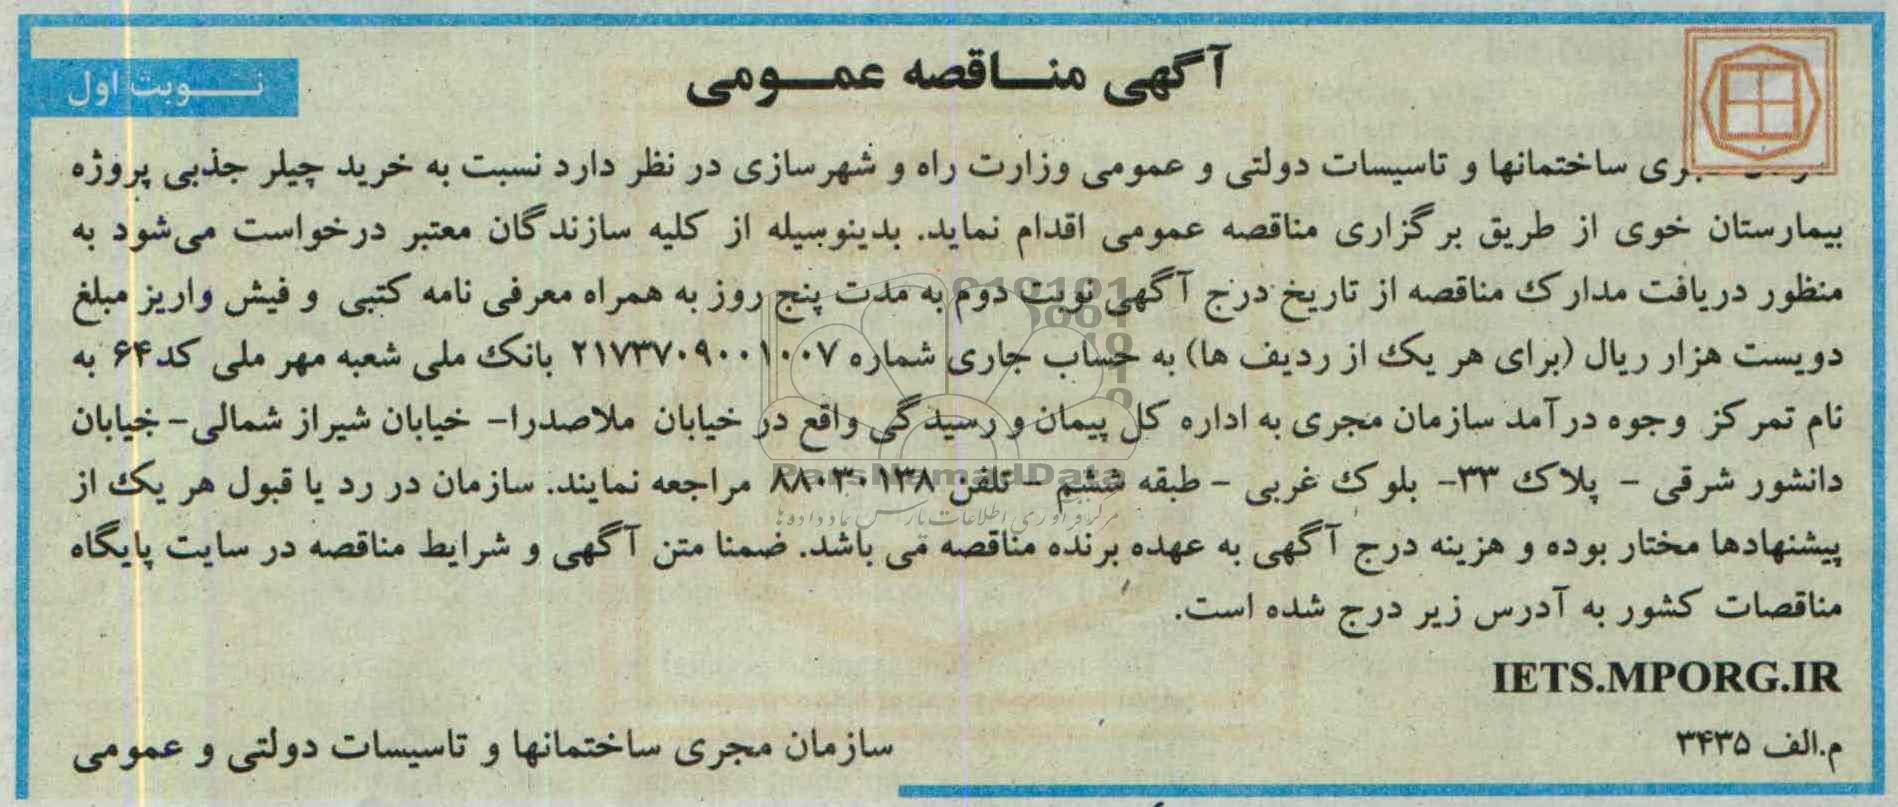 آگهی مناقصه عمومی
نوبت اول
ساختمانها و تاسیسات دولتی و عمومی وزارت راه و شهرسازی در نظر دارد نسبت به خرید چیلر جذبی پروژه
بیمارستان خوی از طریق برگزاری مناقصه عمومی اقدام نماید. بدینوسیله از کلیه سازندگان معتبر درخواست می‌شود به
منظور دریافت مدارک مناقصه از تاریخ درج آگهی نوبت دوم به مدت پنج روز به همراه معرفی نامه کتبی و فیش واریز مبلغ
دویست هزار ریال (برای هر یک از ردیف ها) به حساب جاری شماره ۲۱۷۳۷۰۹۰۰۱۰۰۷ بانک ملی شعبه مهر ملی کد ۶۴ به
نام تمرکز وجوه درآمد سازمان مجری به اداره کل پیمان و رسیدگی واقع در خیابان ملاصدرا- خیابان شیراز شمالی- خیابان
دانشور شرقی - پلاک ۳۳- بلوک غربی - طبقه ششم - تلفن ۸۸۰۳۰۱۳۸ مراجعه نمایند. سازمان در رد یا قبول هر یک از
پیشنهادها مختار بوده و هزینه درج آگهی به عهده برنده مناقصه می باشد. ضمنا متن آگهی و شرایط مناقصه در سایت پایگاه
مناقصات کشور به آدرس زیر درج شده است.
IETS.MPORG.IR
م.الف ۳۴۳۵
سازمان مجری ساختمانها و تاسیسات دولتی و عمومی
ParsNamadData